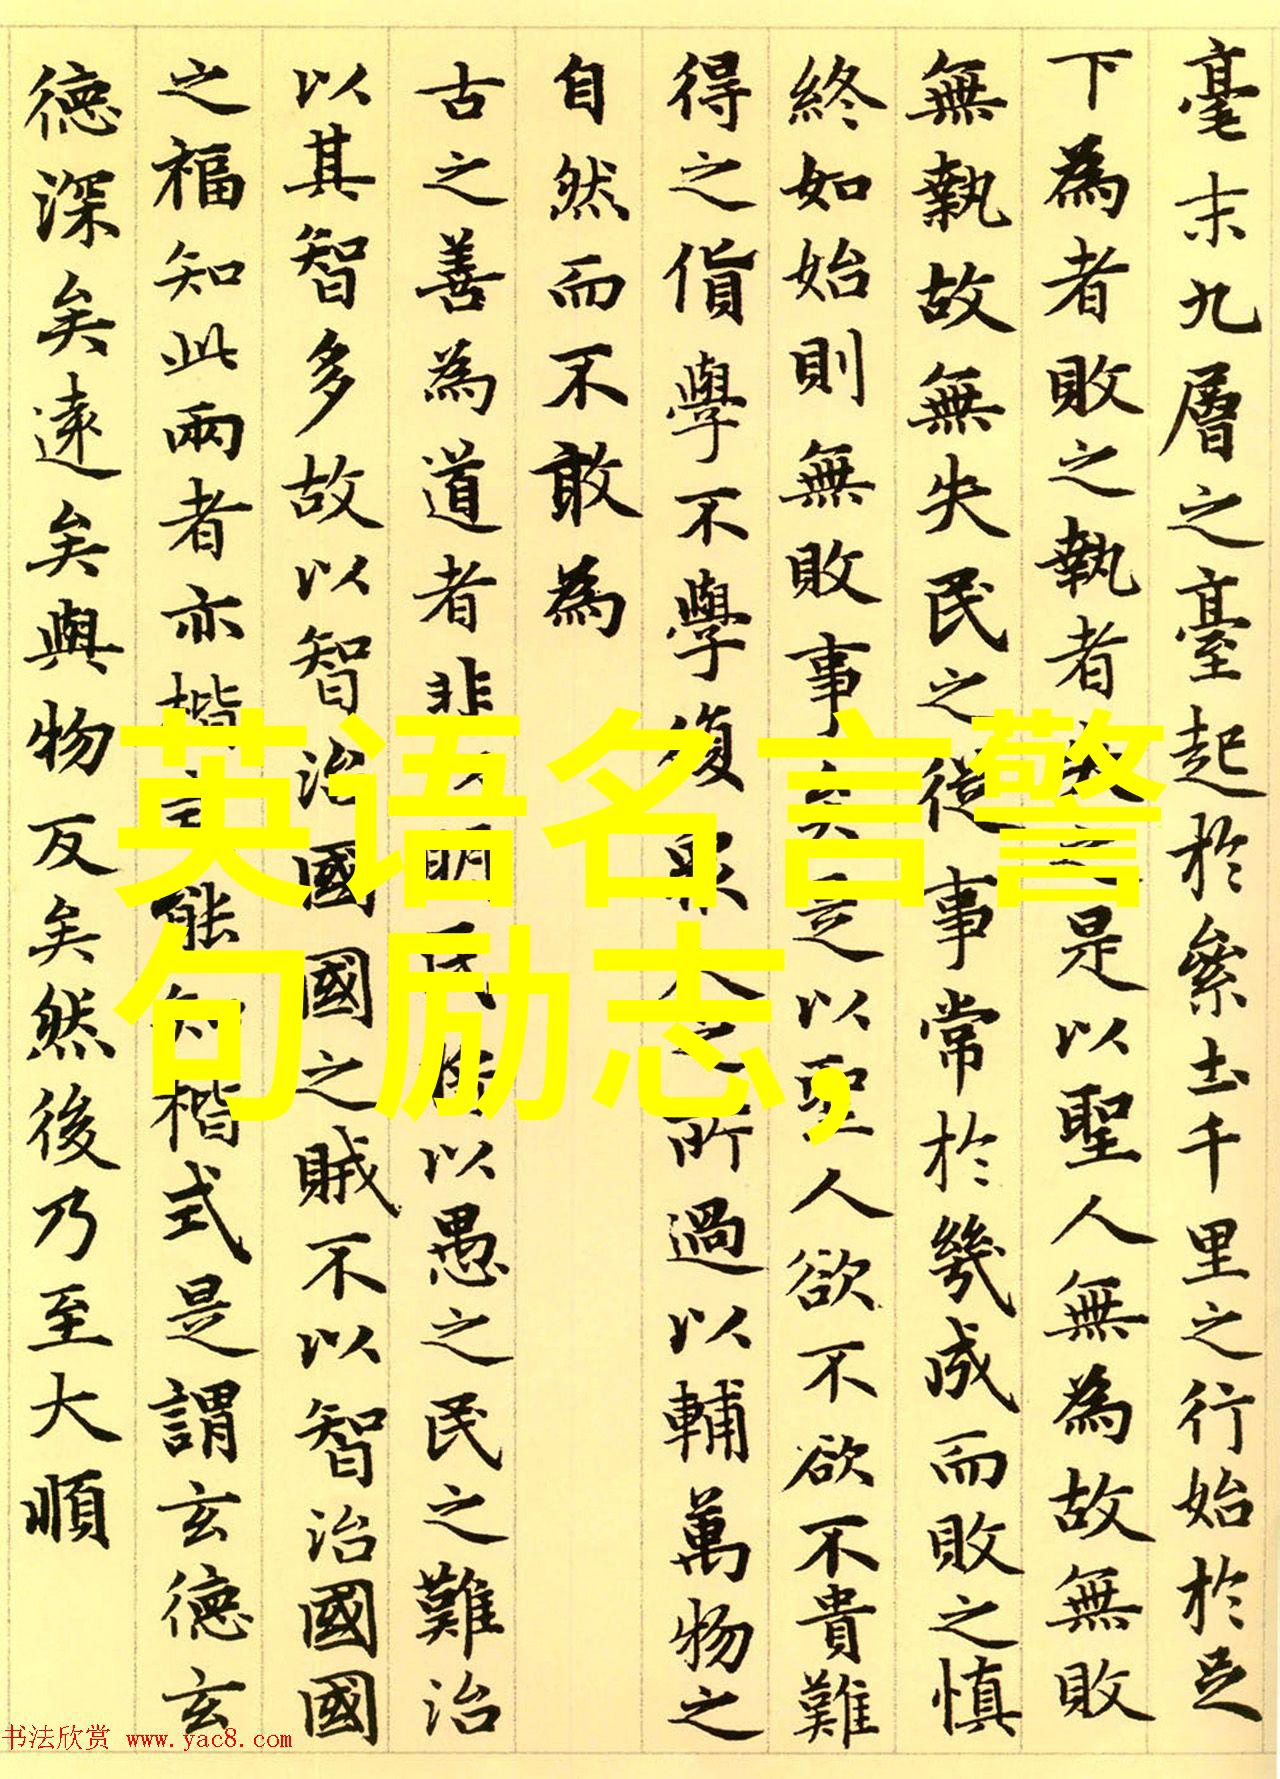 毫末九層之臺起於絫土千里之行始於足
下為者敗之執者失之是以聖人無為故無敗
無執故無失民之從事常於幾成而敗之慎
終如始則無敗事矣是以聖人欲不欲不貴難
得之貨學不學復眾人之所過以輔萬物之
自然而不敢為
古之善為道者非以明民將以愚之民之難治
以其智多故以智治國國之賊不以智治國國
之福知此兩者亦楷式能知楷式是謂玄德玄
德深矣遠矣與物反矣然後乃至大順
英语名言警
句励志,
书法欣赏 www.yac8.com